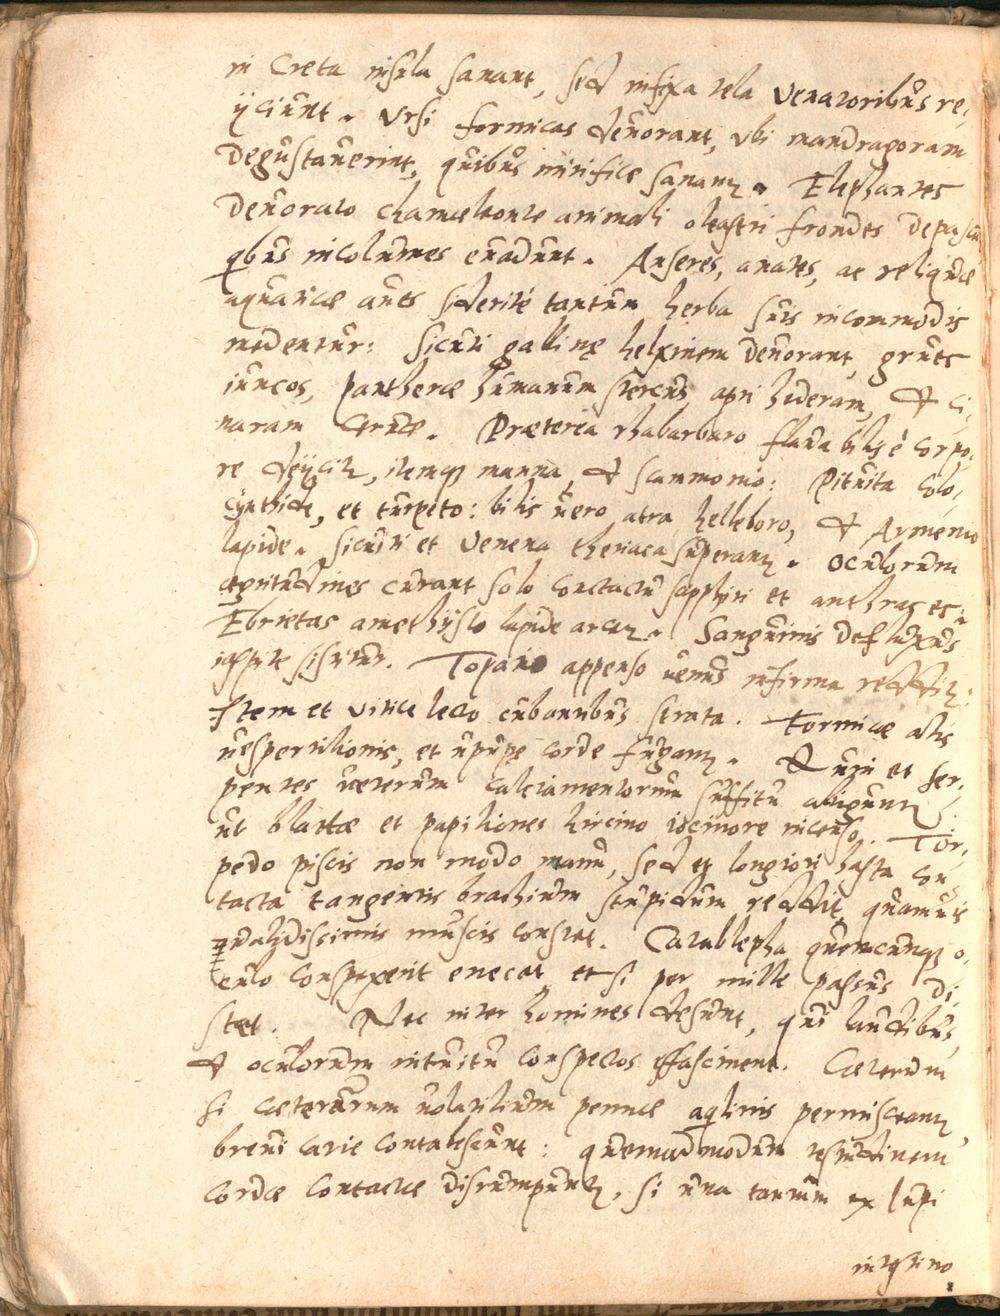 in Creta insula sanant, sed infixa tela Venatoribus re-
ijciunt. Ursi formicas devorant, ubi mandragoram
degustaverint, quibus mirifice sanantur. Elephantes
devorato chamæleonte animali oleastri frondes depascun
qbus incolumes evadunt. Anseres, anates, ac reliquæ
aquaticæ aves siderite tantum herba suis incommodis
medentur: Sicuti gallinę helxinem devorant, grues
iuncos, Pantheræ humanum stercus, apri hederam, et ci-
naram Cervæ. Præterea rhabarbaro flava bilis è corpo-
re deijcitur, itemq manna, et scammonio: Pituita Colo-
cynthide, et turpeto: bilis vero atra helleboro, et Armenio
lapide. Sicuti et Venena theriaca superantur. Oculorum
ægritudines curant solo contactu sapphyri et anthraces:
Ebrietas amethysto lapide arcetur. Sanguinis defluxus
iaspide sistitur. Topatio appenso venus infirma redditur:
Item et vitice lecto cubantibus strata. Formicæ alis
vespertilionis, et upupę corde fugantur. Et viri et ser-
pentes veterum calciamentorum suffitu abiguntur
ut blattæ et papiliones hircino iecinore incenso. Tor-
pedo piscis non modo manu, sed et longiori hasta con
tacta tangentis brachium stupidum reddit, quamvis
qvalidissimis musclis constet. Catablepha quemcunq o-
culo conspexerit enecat, etsi per mille passus di-
stet. Nec inter homines desunt, qui laudibus,
et oculorum intuitu conspectos effascinent. Cæterum
si cæterarum volatilium pennæ aqlinis permisceantur,
brevi carie contabescunt: quemadmodum testudinem
cordæ contactæ disrumpuntur, si una tantum ex lupi
intestino